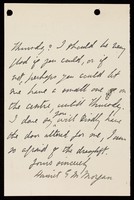 Thursday? I should be very
glad if you could, or if
not, perhaps you could let
me have a small one off
the centre, until Thursday.
I dare say you will kindly have
the door altered for me, I am
so afraid of the draught.
Yours sincerely
Harriet E. M